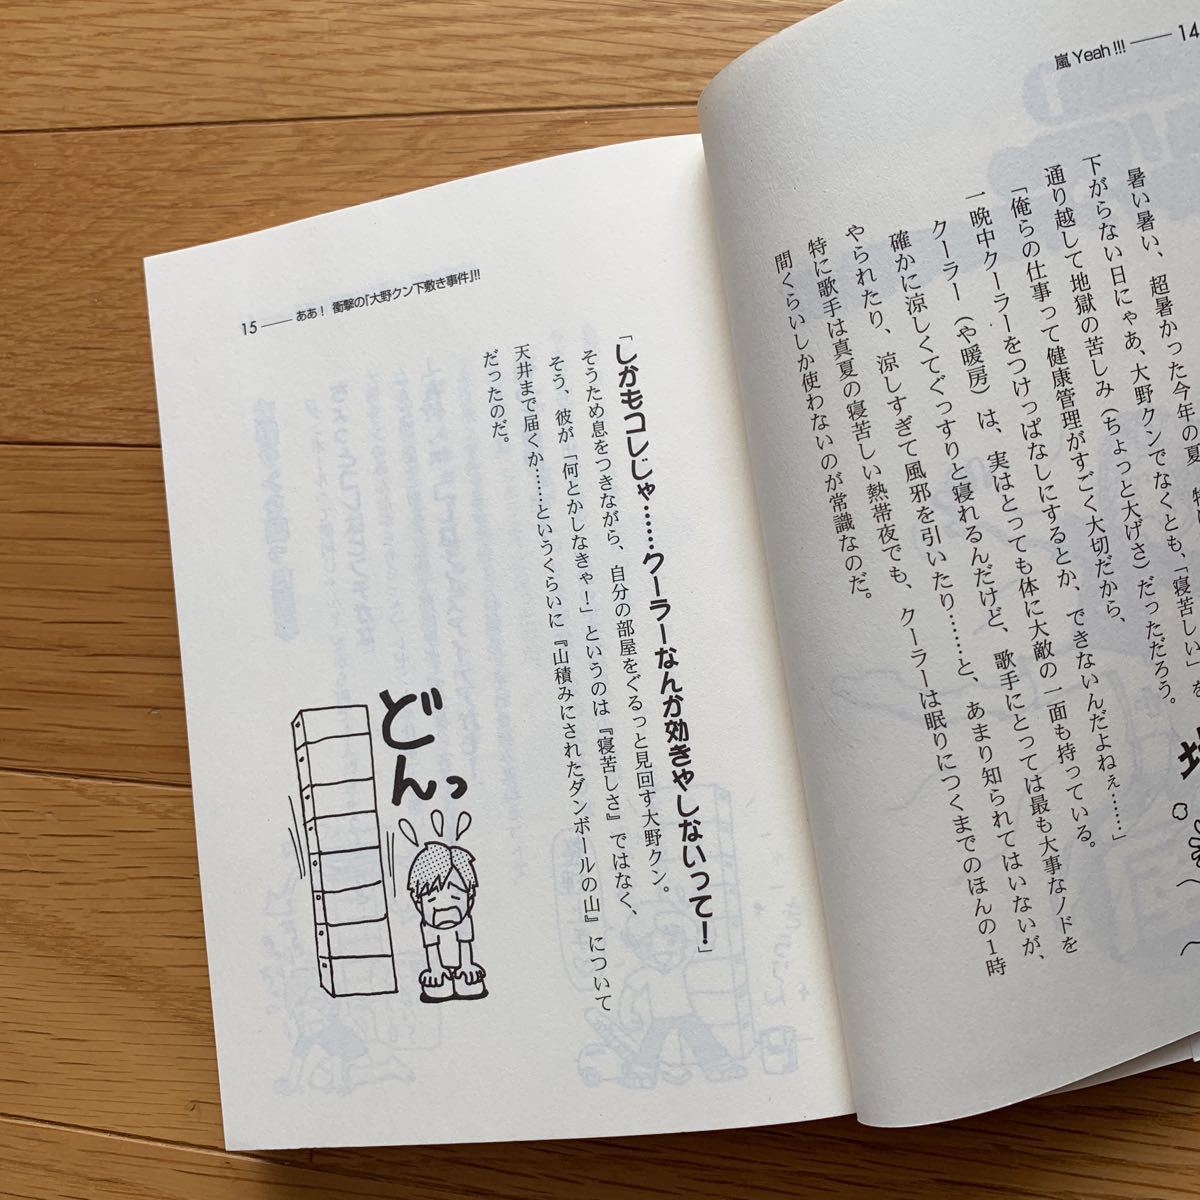 嵐Yeah!!! —— 14
暑い暑い、超暑かった今年の夏、
下がらない日にゃあ、大野クンでなくとも、「寝苦しい」を
通り越して地獄の苦しみ（ちょっと大げさ）だっただろう。
「俺らの仕事って健康管理がすごく大切だから、
一晩中クーラーをつけっぱなしにするとか、できないんだよねぇ……」
クーラー（や暖房）は、実はとっても体に大敵の一面も持っている。
確かに涼しくてぐっすりと寝れるんだけど、歌手にとっては最も大事なノドを
やられたり、涼しすぎて風邪を引いたり……と、あまり知られてはいないが、
特に歌手は真夏の寝苦しい熱帯夜でも、クーラーは眠りにつくまでのほんの1時
間くらいしか使わないのが常識なのだ。
15 —— ああ！ 衝撃の『大野クン下敷き事件』!!!
「しかもコレじゃ……クーラーなんか効きゃしないって！」
そうため息をつきながら、自分の部屋をぐるっと見回す大野クン。
そう、彼が「何とかしなきゃ！」というのは『寝苦しさ』ではなく、
天井まで届くか……というくらいに『山積みにされたダンボールの山』について
だったのだ。
どんっ